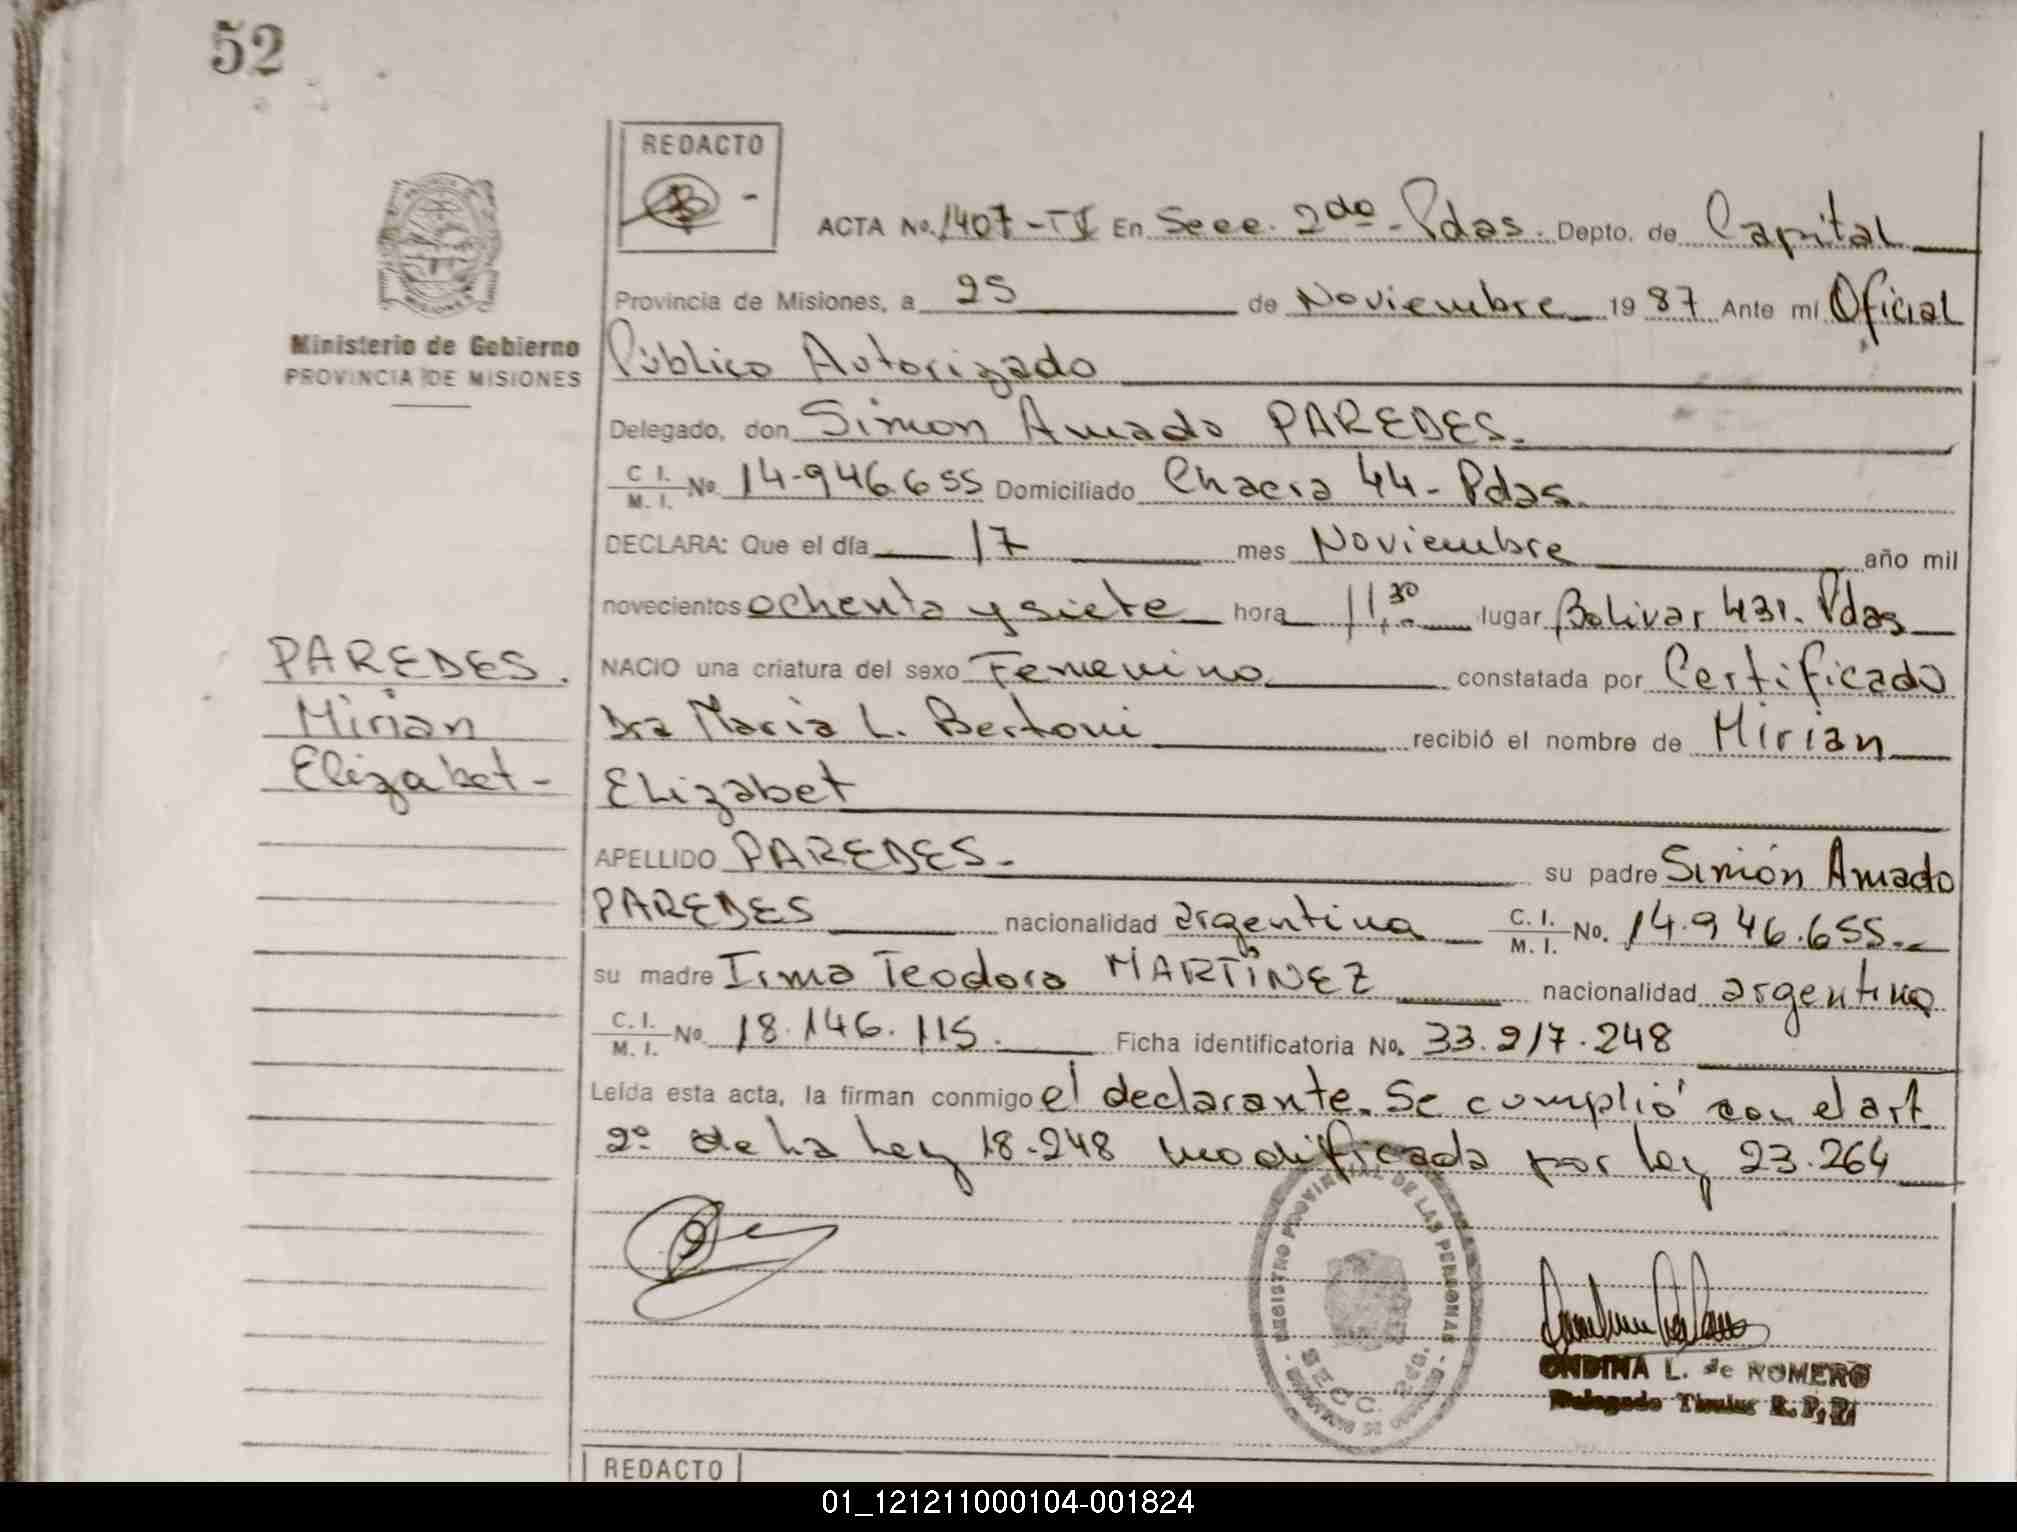 52
REDACTO
ACTA No. 1407-TI En Secc. 2do-Pdas. Depto. de Capital
Ministerio de Gobierno
PROVINCIA DE MISIONES
Provincia de Misiones, a 25 de Noviembre 1987 Ante mí Oficial
Público Autorizado
Delegado, don Simon Amado PAREDES.
C. I. / M. I. No. 14.946.655 Domiciliado Chacra 44- Pdas.
DECLARA: Que el día 17 mes Noviembre año mil
novecientos ochenta y siete hora 11,30 lugar Bolivar 431. Pdas
PAREDES.
Mirian
Elizabet-
NACIO una criatura del sexo Femenino constatada por Certificado
Dra Maria L. Bertoni recibió el nombre de Mirian
Elizabet
APELLIDO PAREDES- su padre Simón Amado
PAREDES nacionalidad argentina C. I. / M. I. No. 14.946.655.-
su madre Irma Teodora MARTÍNEZ nacionalidad argentina
C. I. / M. I. No. 18.146.115. Ficha identificatoria No. 33.217.248
Leída esta acta, la firman conmigo el declarante. Se cumplió con el art
2º de la Ley 18.248 modificada por ley 23.264
REGISTRO PROVINCIAL DE LAS PERSONAS
SECC. 2da.
ONDINA L. de ROMERO
Delegado Titular R. P. P.
REDACTO
01_121211000104-001824